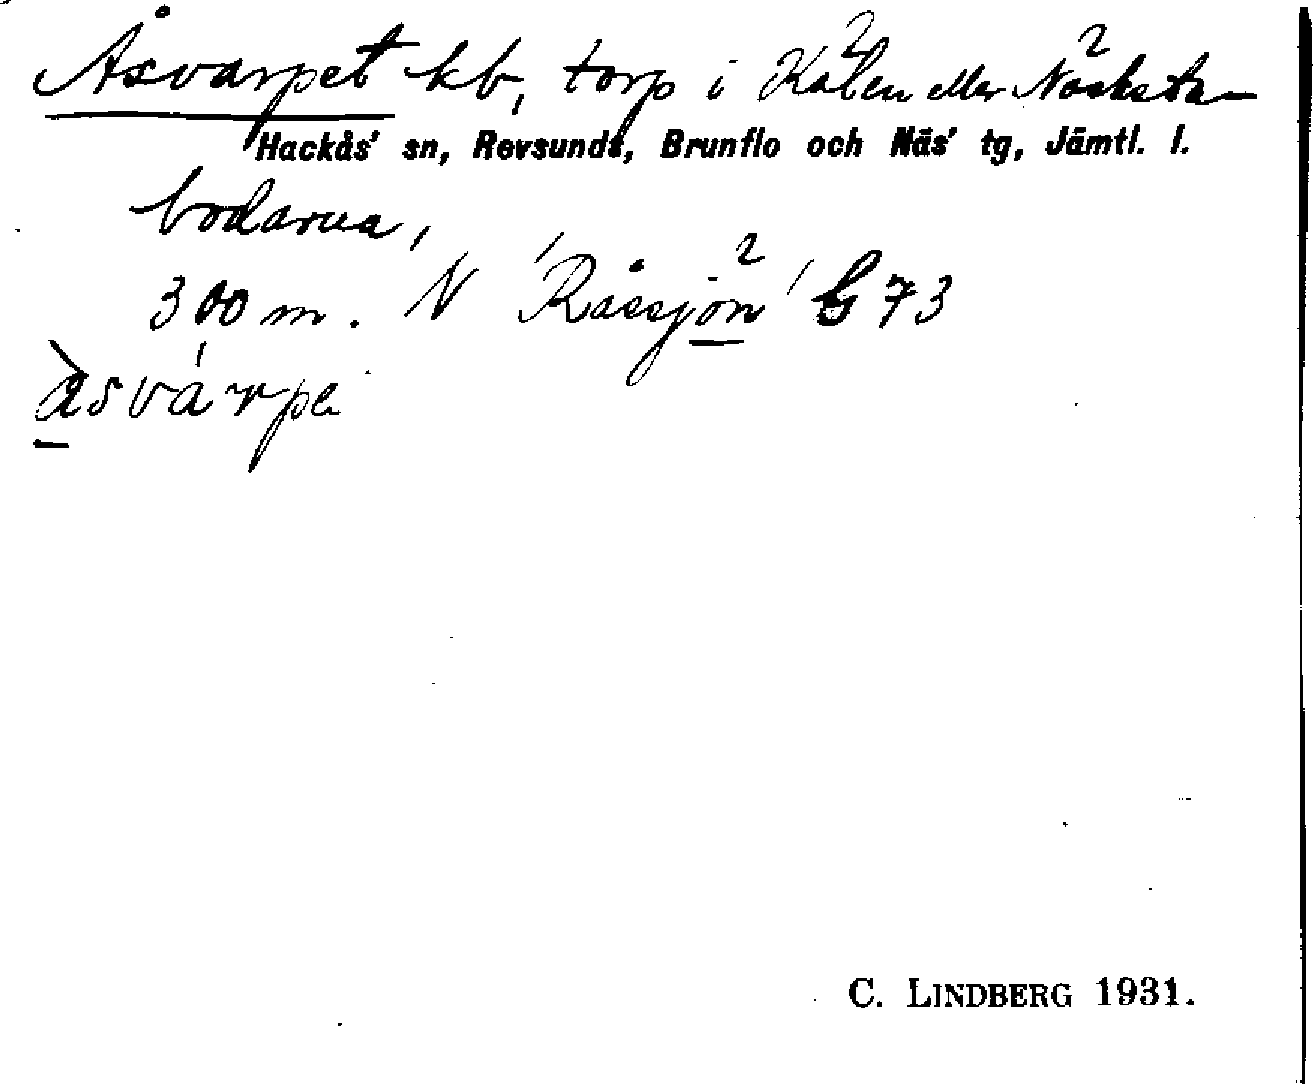 Åsvarpet kb, torp i Kälen eller Näcksta-
Hackås' sn, Revsunds, Brunflo och Näs' tg, Jämtl. l.
bodarna,
300 m. N Råssjön G 73
åsvárpe
C. LINDBERG 1931.